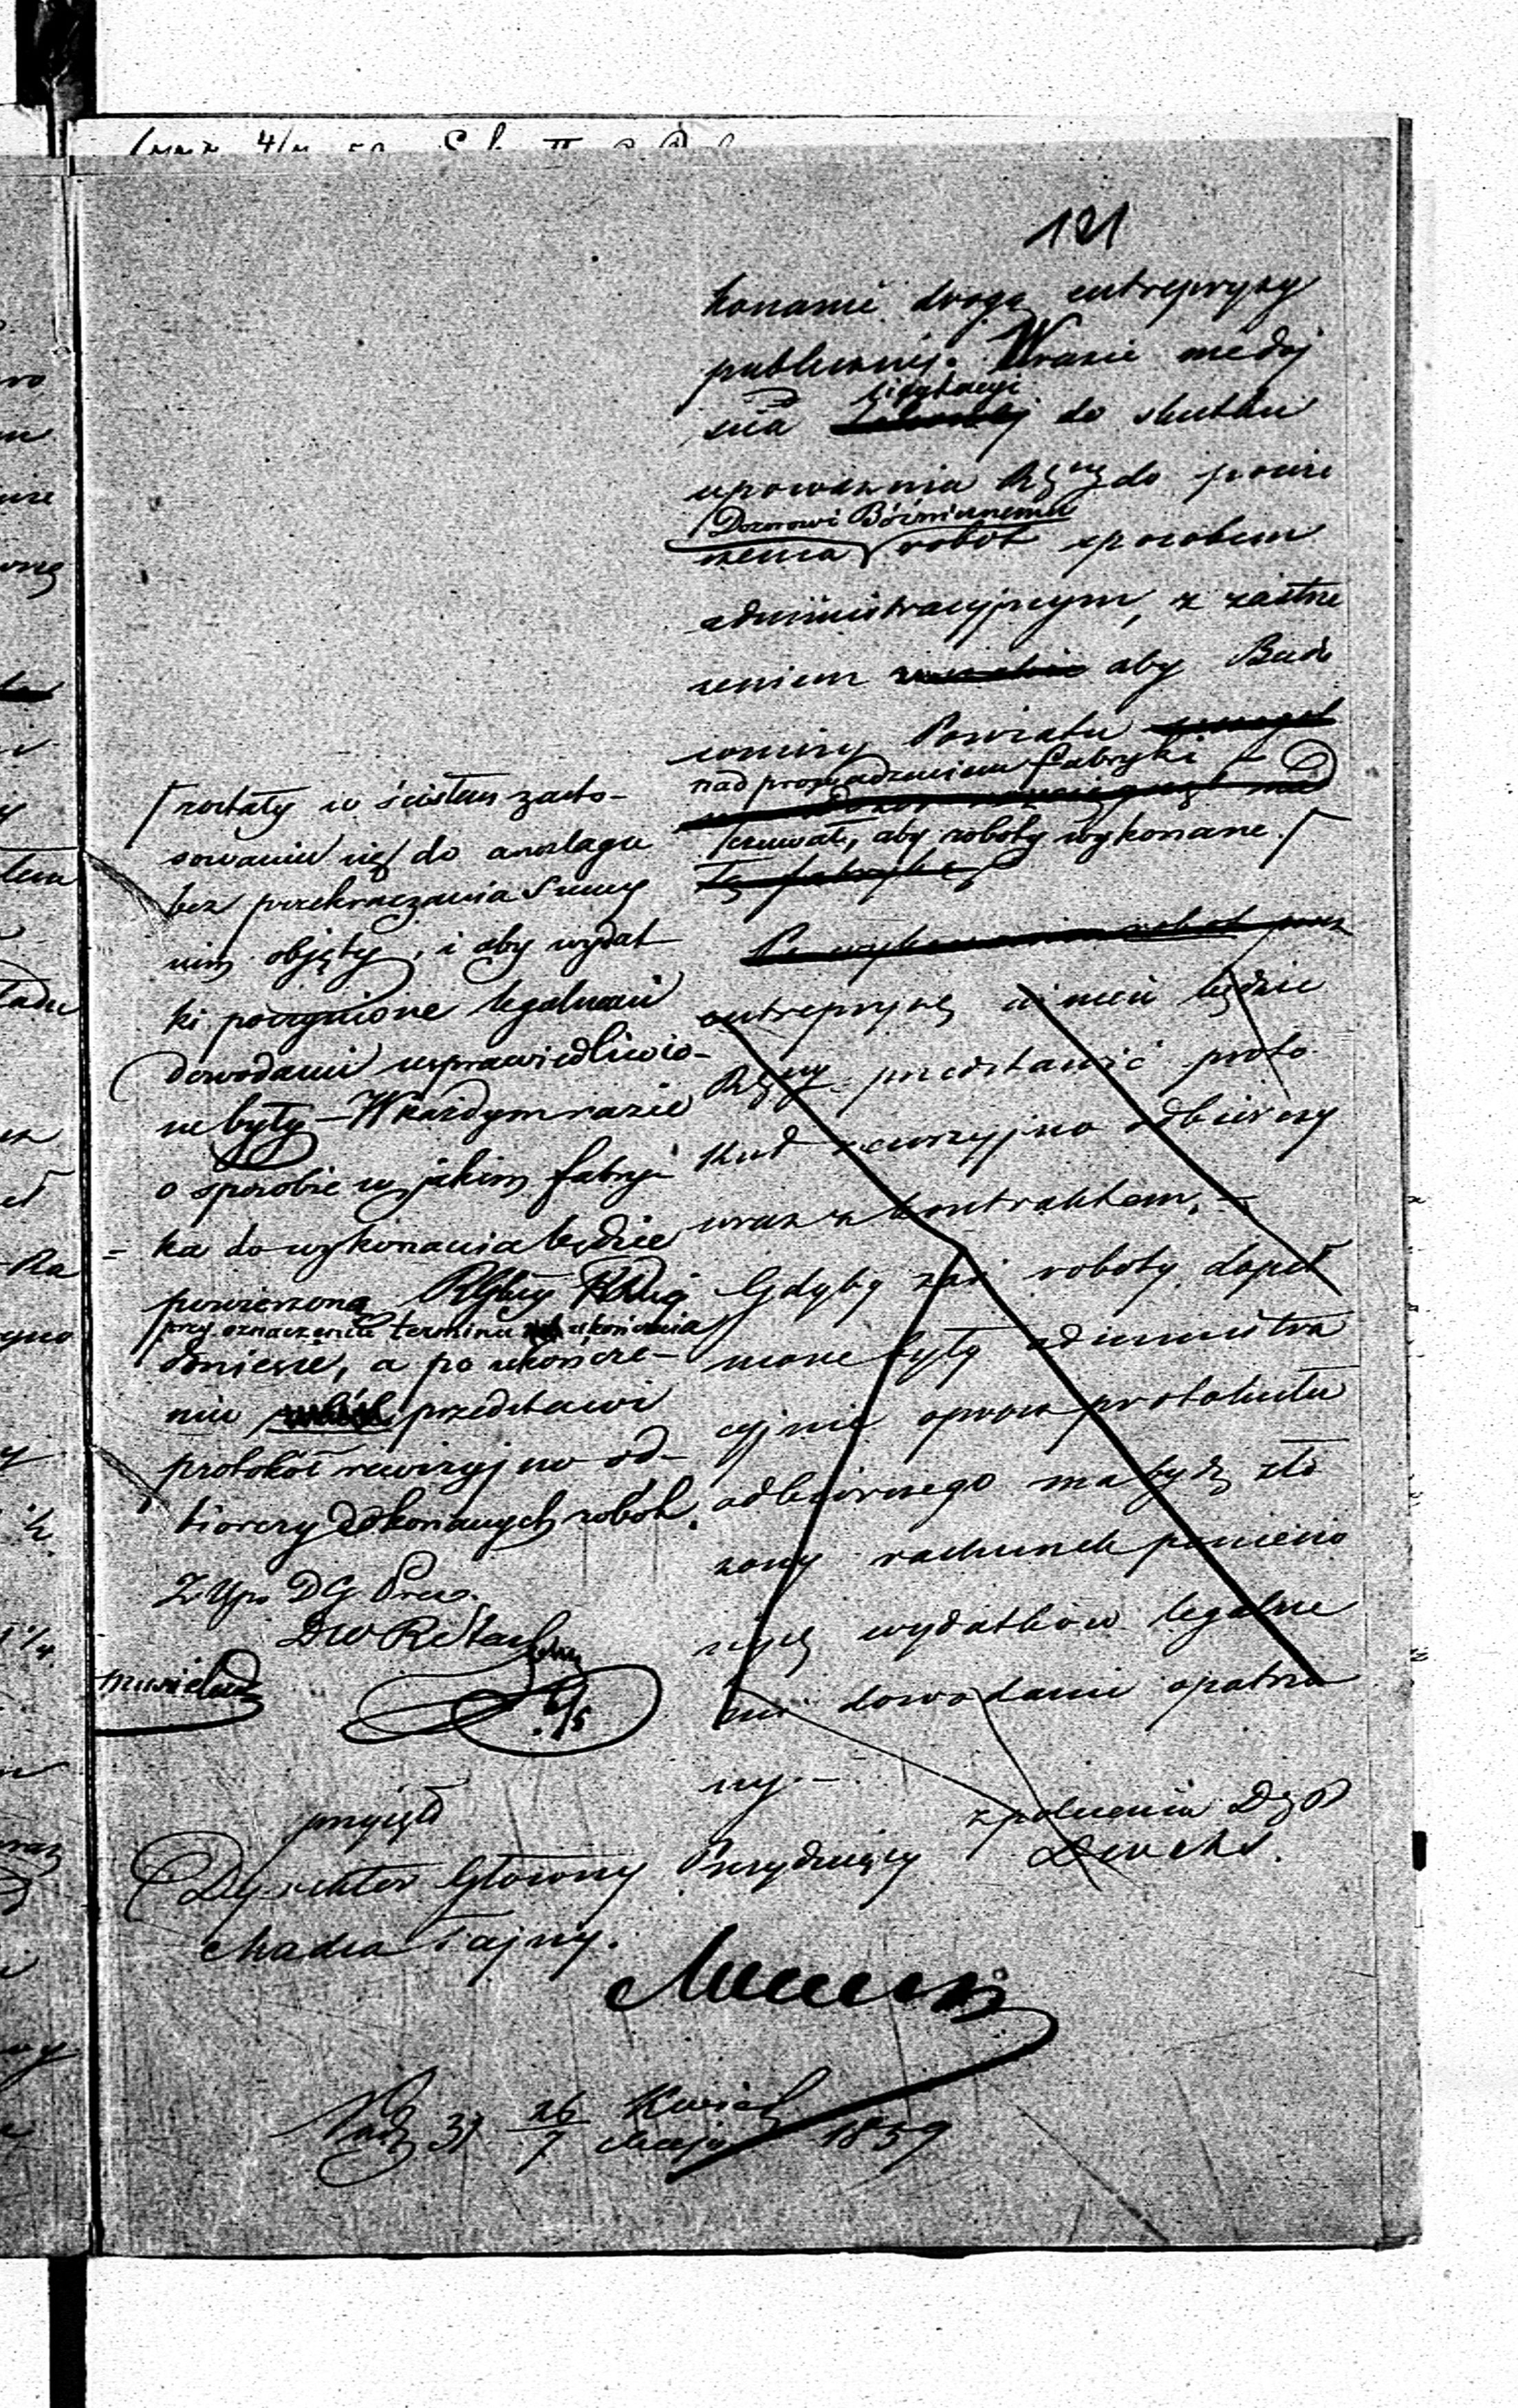 121
konanie drogą entrepryzy
publicznej. W razie niedoj
ścia licytacyi do skutku
upoważnia Rząd do powie
Dozorowi Bóźnicznemu
rzenia robót sposobem
administracyjnym, z zastrze
żeniem aby Budo
wniczy Powiatu
nad prowadzeniem fabryki
czuwał, aby roboty wykonane
tę fabrykę
Po wykonaniu robót przez
entrepryzę winien będzie
Rząd przedstawić proto
kuł rewizyjno odbiorczy
wraz z kontraktem. –
Gdyby zaś roboty dopeł
nione były administra
cyjnie oprócz protokułu
odbiorczego ma być zło
żony rachunek poniesio
nych wydatków legalne
mi dowodami opatrzo
ny. –
z polecenia DGP
zostały w ścisłem zasto-
sowaniu się do anszlagu
bez przekraczania Summy
nim objętej, i aby wydat
ki poczynione legalnemi
dowodami usprawiedliwio-
ne były – W każdym razie
o sposobie w jakim fabry-
ka do wykonania będzie
powierzona Rząd Gbny KRządz
przy oznaczeniu terminu ukończenia
doniesie, a po ukończe-
niu przedstawi
protokół rewizyjno od-
biorczy dokonanych robót.
Z Up. DG Prez.
DW RSta
6/5
przyjął
Dyrektor Główny Prezydujący
Radca Tajny.
26 Kwiet
7 Maja 1859